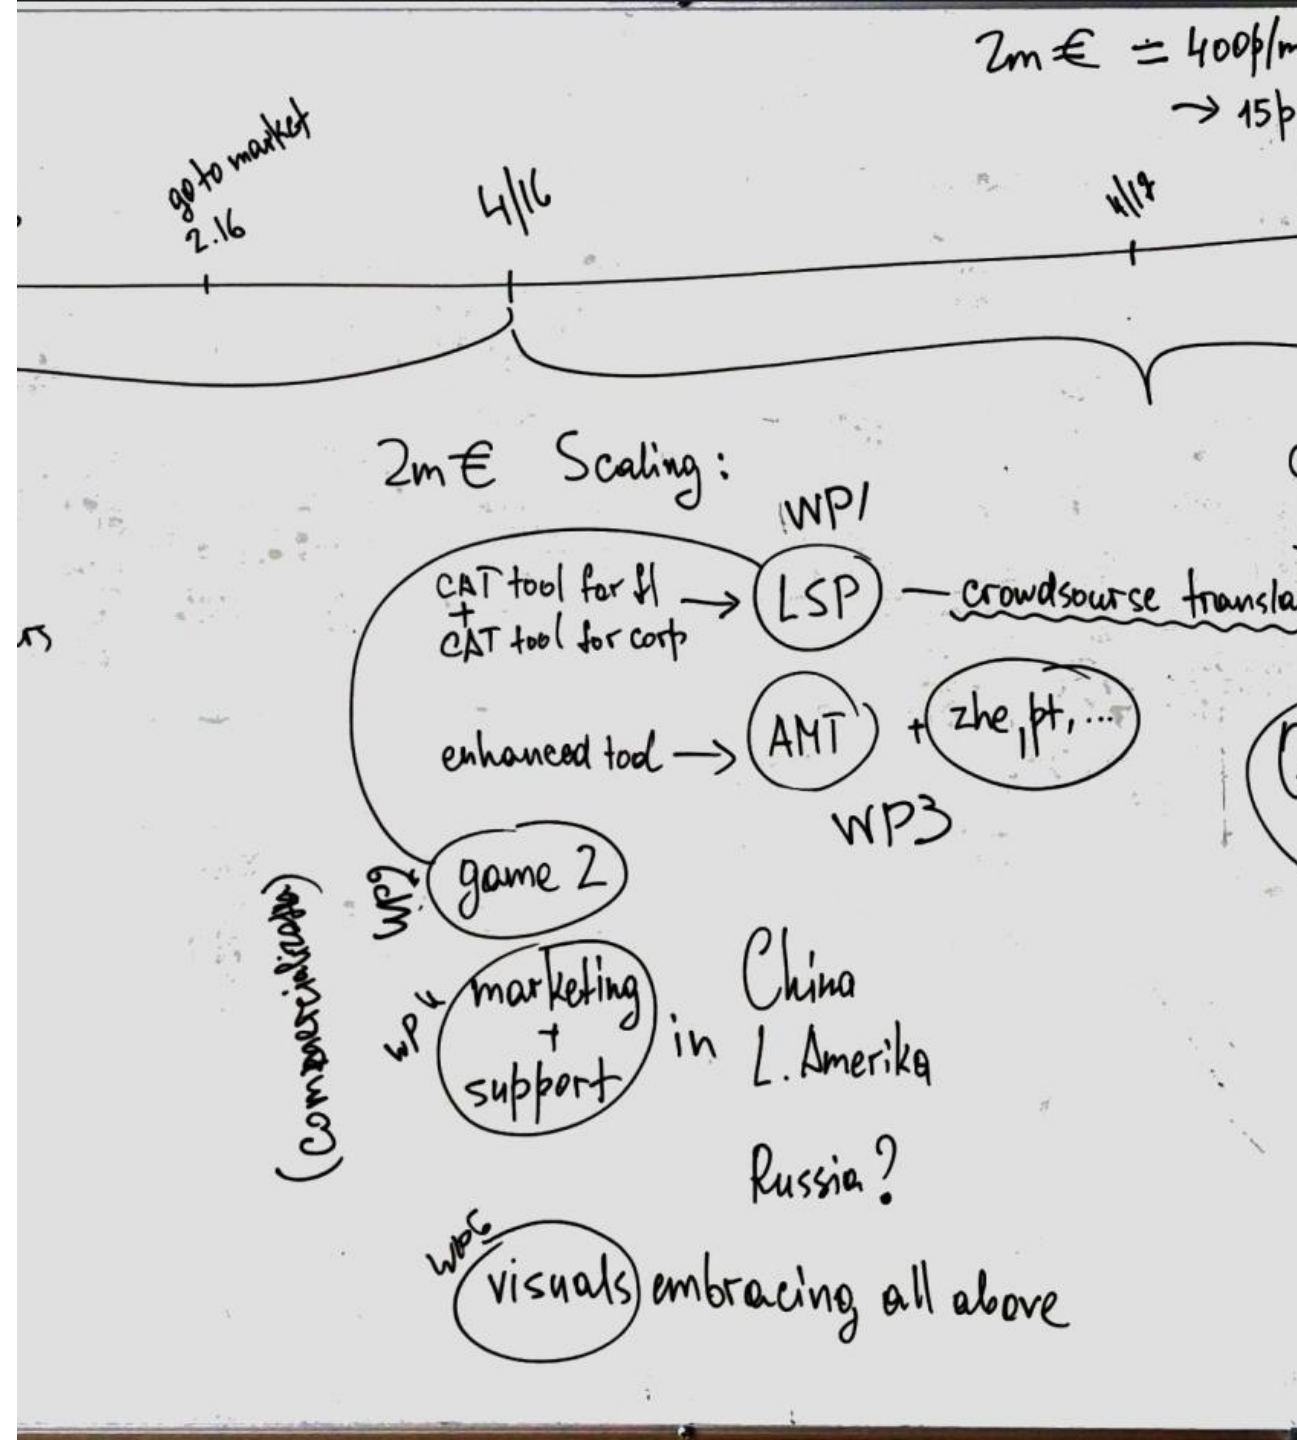 2m € ≐ 400p/m
→ 15p
go to market
2.16
4/16
4/17
2m € Scaling:
WP1
CAT tool for fl
+
CAT tool for corp
→ LSP — crowdsourse transla
enhanced tool → AMT + zhe, pt, ...
WP3
WP2
game 2
(Commercialization)
WP4
marketing
+
support
in
China
L. Amerika
Russia?
visuals embracing all above